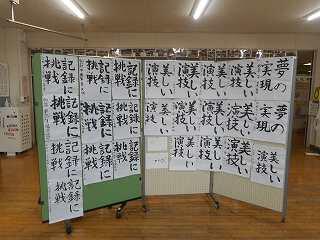 夢の
実現
美しい
演技
美しい
演技
美しい
演技
美しい
演技
記録に
挑戦
記録に
挑戦
記録に
挑戦
夢の
実現
美しい
演技
美しい
演技
美しい
演技
美しい
演技
記録に
挑戦
記録に
挑戦
記録に
挑戦
美しい
演技
美しい
演技
美しい
演技
記録に
挑戦
記録に
挑戦
記録に
挑戦
記録に
挑戦